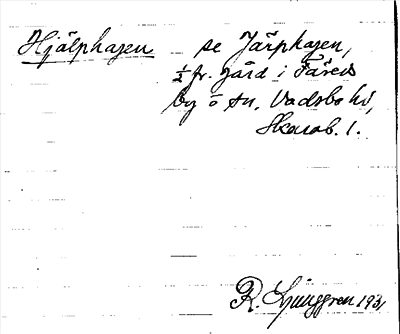 Hjälphagen se Järphagen,
1/2 fr. gård i Fåreds
by o sn, Vadsbo hd,
Skarab. l.
R. Ljunggren 1931